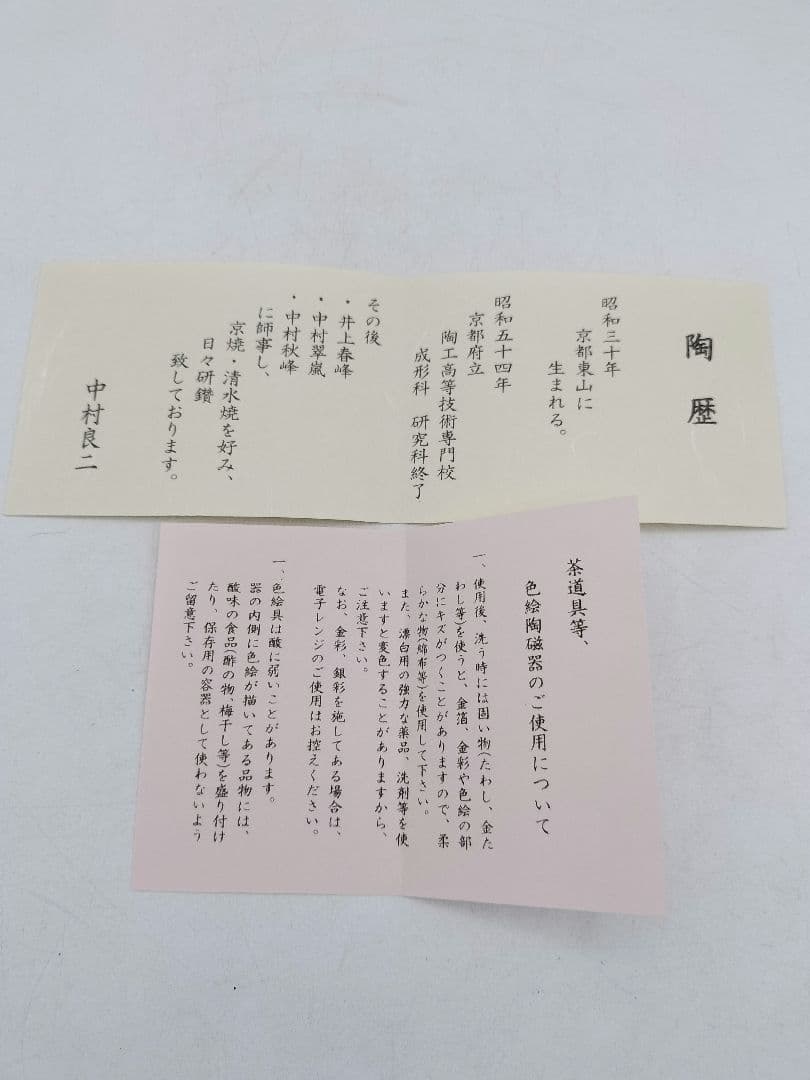 陶歴
昭和三十年
京都東山に
生まれる。
昭和五十四年
京都府立
陶工高等技術専門校
成形科　研究科終了
その後
・井上春峰
・中村翠嵐
・中村秋峰
に師事し、
京焼・清水焼を好み、
日々研鑽
致しております。
中村良二
茶道具等、
色絵陶磁器のご使用について
一、使用後、洗う時には固い物(たわし、金た
わし等)を使うと、金箔、金彩や色絵の部
分にキズがつくことがありますので、柔
らかな物(綿布等)を使用して下さい。
また、漂白用の強力な薬品、洗剤等を使
いますと変色することがありますから、
ご注意下さい。
なお、金彩、銀彩を施してある場合は、
電子レンジのご使用はお控えください。
一、色絵具は酸に弱いことがあります。
器の内側に色絵が描いてある品物には、
酸味の食品(酢の物、梅干し等)を盛り付け
たり、保存用の容器として使わないよう
ご留意下さい。